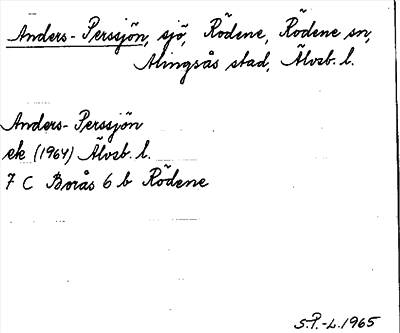 Anders-Perssjön, sjö, Rödene, Rödene sn,
Alingsås stad, Älvsb. l.
Anders-Perssjön
ek (1964) Älvsb. l.
7 C Borås 6 b Rödene
S.P.-L. 1965